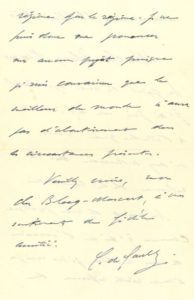 régime pour le régime. Je ne
puis donc me prononcer
sur aucun projet puisque
je suis convaincu que le
meilleur du monde n'aura
pas d'aboutissement dans
les circonstances présentes.
Veuillez croire, mon
cher Bloch-Morhange, à mes
sentiments de fidèle
amitié.
C. de Gaulle